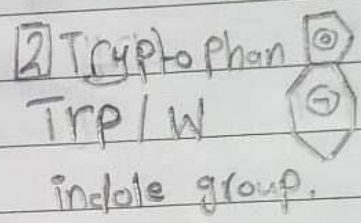 2 Tryptophan
Trp / W
indole group.